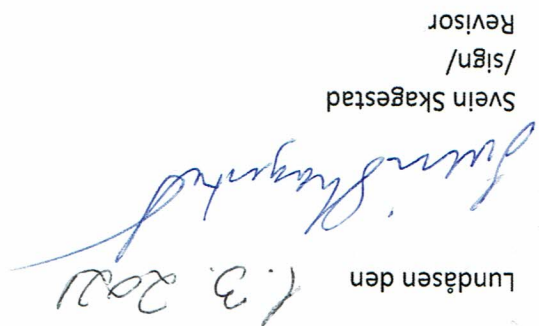 Lundåsen den 1.3.2021
Svein Skagestad
Svein Skagestad
/sign/
Revisor